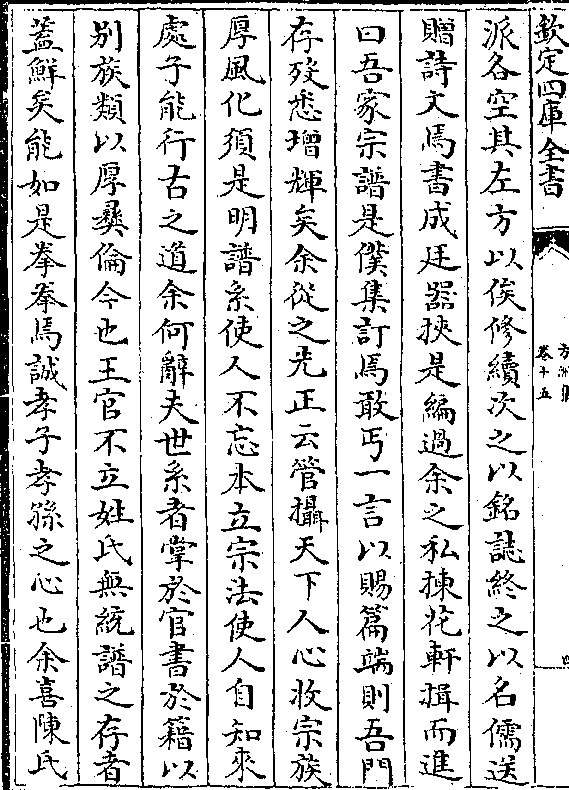 欽定四庫全書
卷十五
派各空其左方以俟修續次之以銘誌終之以名儒送
贈詩文焉書成廷器挾是編過余之私揀花軒揖而進
曰吾家宗譜是僕集訂焉敢丐一言以賜篇端則吾門
存歿悉增輝矣余從之先正云管攝天下人心收宗族
厚風化須是明譜系使人不忘本立宗法使人自知來
處子能行古之道余何辭夫世系者掌於官書於籍以
别族類以厚彛倫今也王官不立姓氏無統譜之存者
蓋鮮矣能如是拳拳焉誠孝子孝孫之心也余喜陳氏